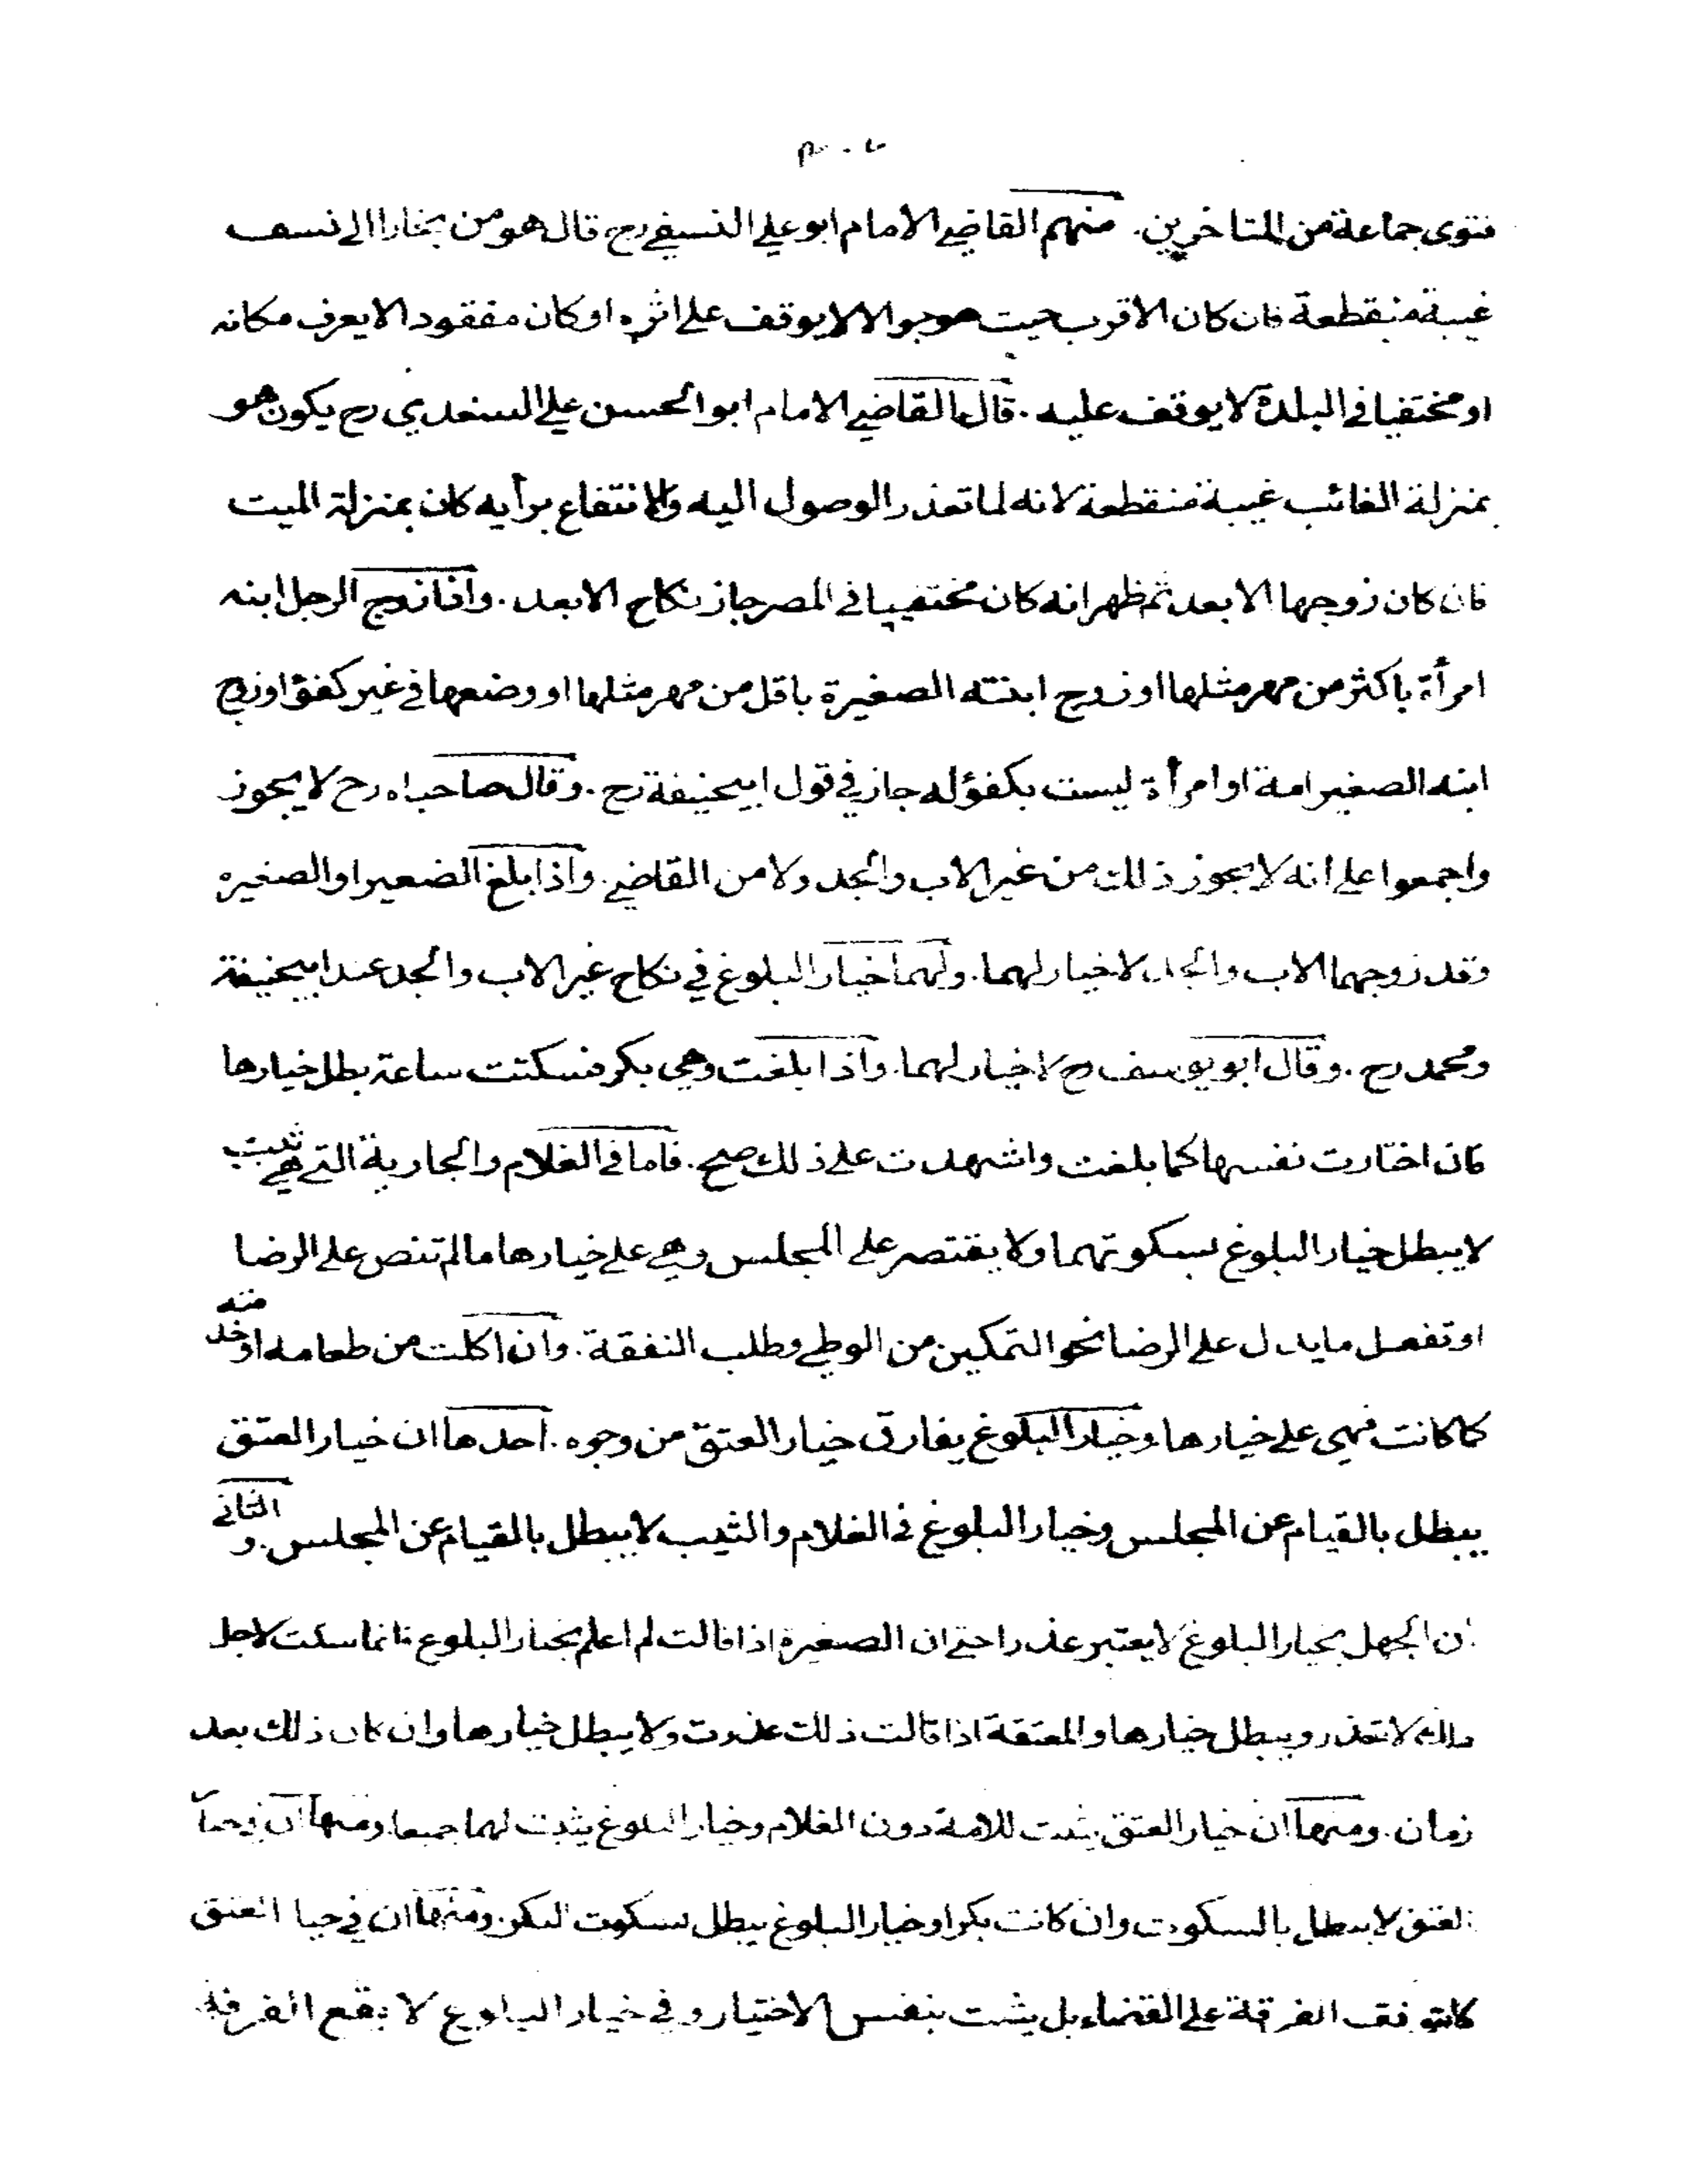 فتوى جماعة من المتاخرين. منهم القاضي الامام ابو علي النسفي رح قال هو من بخارا الى نسف
غيبة منقطعة فان كان الاقرب حيث هو جوالا لا يوقف على اثره او كان مفقودا لا يعرف مكانه
او مختفيا في البلدة لا يوقف عليه. قال القاضي الامام ابو الحسن علي السغدي رح يكون هو
بمنزلة الغائب غيبة منقطعة لانه لما تعذر الوصول اليه والانتفاع برأيه كان بمنزلة الميت
فان كان زوجها الابعد ثم ظهر انه كان مختفيا في المصر جاز نكاح الابعد. واذا زوج الرجل ابنه
امرأة باكثر من مهر مثلها او زوج ابنته الصغيرة باقل من مهر مثلها او وضعها في غير كفؤ او زوج
ابنه الصغير امة او امرأة ليست بكفؤ له جاز في قول ابيحنيفة رح. وقال صاحباه رح لا يجوز
واجمعوا على انه لا يجوز ذلك من غير الاب والجد ولا من القاضي. واذا بلغ الصغير او الصغيره
وقد زوجهما الاب والجد لا خيار لهما. ولهما خيار البلوغ في نكاح غير الاب والجد عند ابيحنيفة
ومحمد رح. وقال ابو يوسف رح لا خيار لهما. واذا بلغت وهي بكر فسكتت ساعة بطل خيارها
فان اختارت نفسها كما بلغت واشهدت على ذلك صح. فاما في الغلام والجارية التي هي ثيب
لا يبطل خيار البلوغ بسكوتهما ولا يقتصر على المجلس وهي على خيارها ما لم تنص على الرضا
او تفعل ما يدل على الرضا نحو التمكين من الوطي وطلب النفقة. وان اكلت من طعامه او خد منه
كما كانت فهي على خيارها. وخيار البلوغ يفارق خيار العتق من وجوه. احدها ان خيار العتق
يبطل بالقيام عن المجلس وخيار البلوغ في الغلام والثيب لا يبطل بالقيام عن المجلس. و الثاني
ان الجهل بخيار البلوغ لا يعتبر عذرا حتى ان الصغيرة اذا قالت لم اعلم بخيار البلوغ فانما سكت لاجل
ذلك لا تعذر ويبطل خيارها والمعتقة اذا قالت ذلك عذرت ولا يبطل خيارها وان كان ذلك بعد
زمان. ومنها ان خيار العتق يثبت للامة دون الغلام وخيار البلوغ يثبت لهما جميعا. ومنها ان
العتق لا يبطل بالسكوت وان كانت بكرا وخيار البلوغ يبطل بسكوت البكر. ومنها ان في خيار العتق
فق الفرقة على القضاء بل يثبت بنفس الاختيار وفي خيار البلوغ لا يقع الفرقة